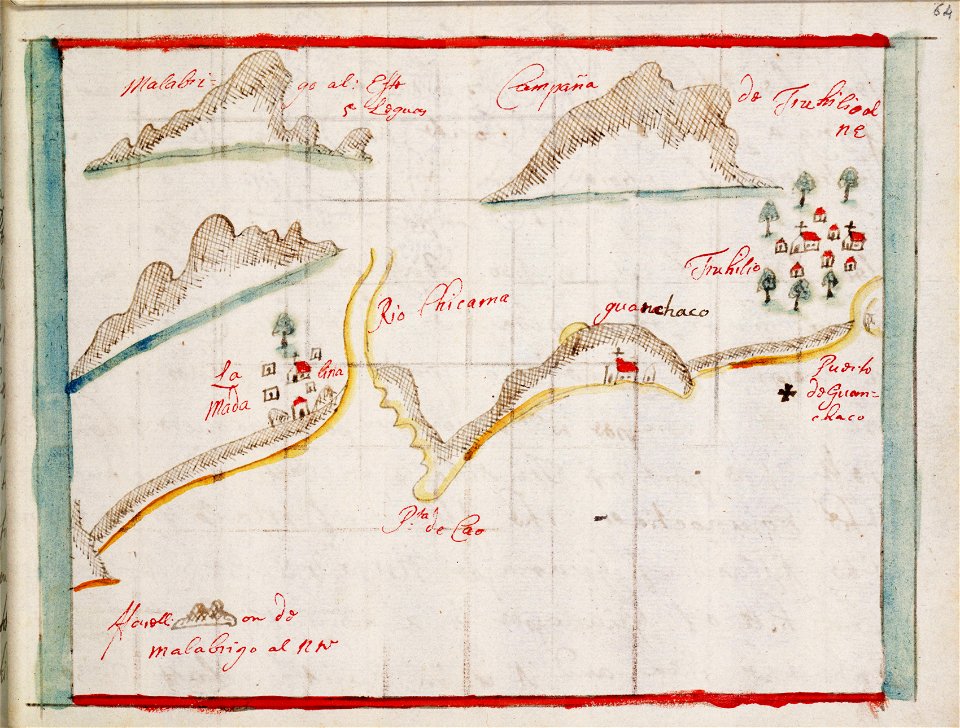 64
Malabri- go al: Este
5 Leguas
Campaña de Truhilio al
NE
Truhilio
Rio Chicama
guanchaco
la
Mada lina
Puerto
de Guan-
chaco
Pta de Cao
Farelli on de
malabrigo al NW